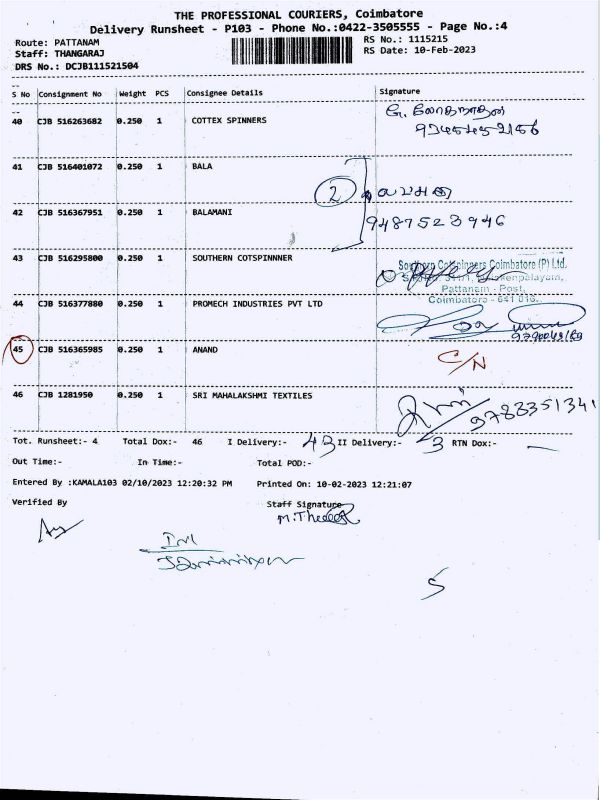 THE PROFESSIONAL COURIERS, Coimbatore
Delivery Runsheet - P103 - Phone No.:0422-3505555 - Page No.:4
Route: PATTANAM RS No.: 1115215
Staff: THANGARAJ RS Date: 10-Feb-2023
DRS No.: DCJB111521504
S No Consignment No Weight PCS Consignee Details Signature
40 CJB 516263682 0.250 1 COTTEX SPINNERS
41 CJB 516401072 0.250 1 BALA
2
42 CJB 516367951 0.250 1 BALAMANI 9487523946
43 CJB 516295800 0.250 1 SOUTHERN COTSPINNNER
Southern CotSpinners Coimbatore (P) Ltd.
Pattanam - Post,
Coimbatore - 641 016.
44 CJB 516377880 0.250 1 PROMECH INDUSTRIES PVT LTD
45 CJB 516365985 0.250 1 ANAND C/N
46 CJB 1281950 0.250 1 SRI MAHALAKSHMI TEXTILES 9788351341
Tot. Runsheet:- 4 Total Dox:- 46 I Delivery:- 43 II Delivery:- 3 RTN Dox:- —
Out Time:- In Time:- Total POD:-
Entered By :KAMALA103 02/10/2023 12:20:32 PM Printed On: 10-02-2023 12:21:07
Verified By Staff Signature